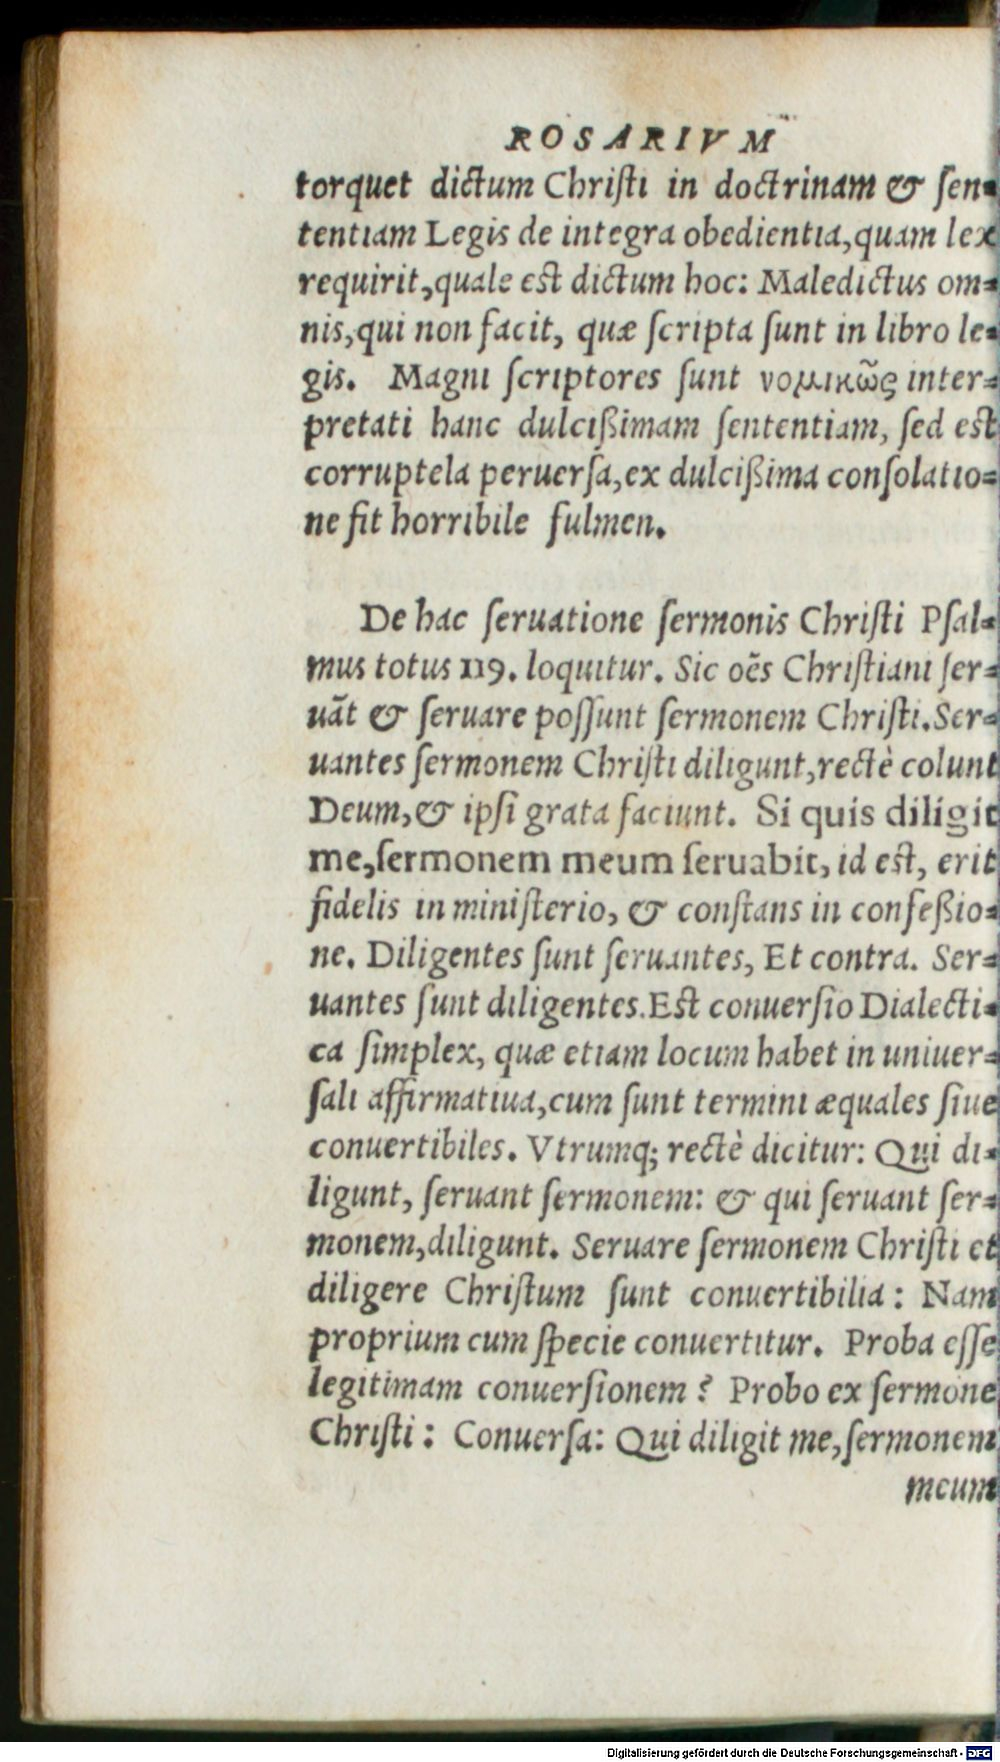 ROSARIVM
torquet dictum Chriſti in doctrinam & ſen⸗
tentiam Legis de integra obedientia,quam lex
requirit,quale est dictum hoc: Maledictus om⸗
nis,qui non facit, quæ ſcripta ſunt in libro le⸗
gis. Magni ſcriptores ſunt νομικῶς inter⸗
pretati hanc dulcißimam ſententiam, ſed est
corruptela peruerſa,ex dulcißima conſolatio⸗
ne fit horribile fulmen.
De hac ſeruatione ſermonis Chriſti Pſal⸗
mus totus 119. loquitur. Sic oẽs Chriſtiani ſer⸗
uãt & ſeruare poſſunt ſermonem Chriſti.Ser⸗
uantes ſermonem Chriſti diligunt,rectè colunt
Deum,& ipſi grata faciunt. Si quis diligit
me,ſermonem meum ſeruabit, id est, erit
fidelis in miniſterio, & conſtans in confeßio⸗
ne. Diligentes ſunt ſeruantes, Et contra. Ser⸗
uantes ſunt diligentes.Est conuerſio Dialecti⸗
ca ſimplex, quæ etiam locum habet in uniuer⸗
ſali affirmatiua,cum ſunt termini æquales ſiue
conuertibiles. Vtrumq; rectè dicitur: Qui di⸗
ligunt, ſeruant ſermonem: & qui ſeruant ſer⸗
monem,diligunt. Seruare ſermonem Chriſti et
diligere Chriſtum ſunt conuertibilia: Nam
proprium cum ſpecie conuertitur. Proba eſſe
legitimam conuerſionem? Probo ex ſermone
Chriſti: Conuerſa: Qui diligit me,ſermonem
meum
Digitalisierung gefördert durch die Deutsche Forschungsgemeinschaft - DFG